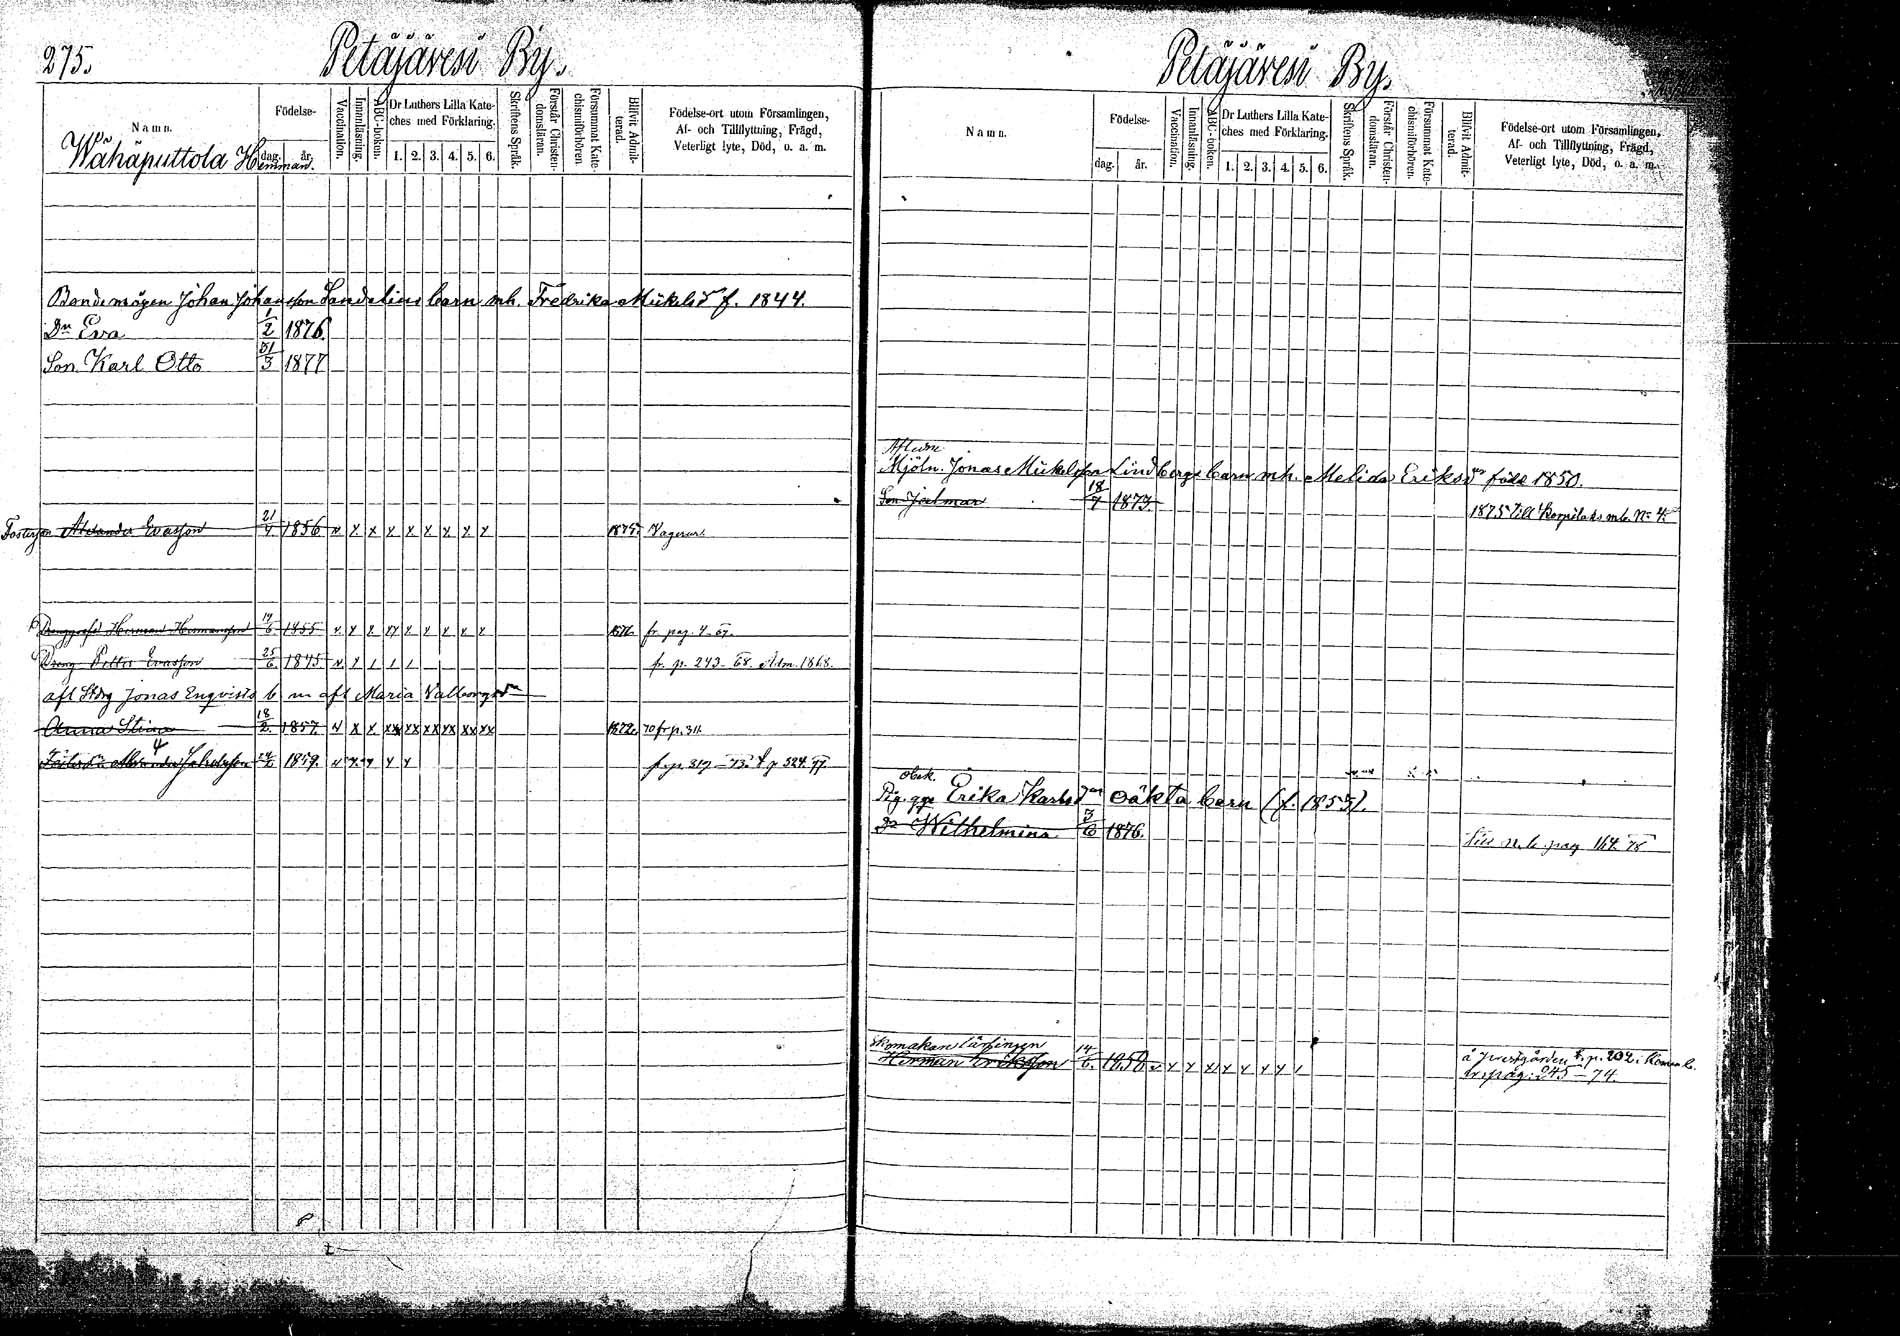 275.
Petäjävesi By.
Namn.
Födelse-
dag. år.
Vaccination.
Innanläsning.
ABC-boken.
Dr Luthers Lilla Kate-
ches med Förklaring.
1. 2. 3. 4. 5. 6.
Skriftens Språk.
Förstår Christen-
domsläran.
Försummat Kate-
chismiförhören.
Blifvit Admit-
terad.
Födelse-ort utom Församlingen,
Af- och Tillflyttning, Frägd,
Veterligt lyte, Död, o. a. m.
Wähäputtola Hemman.
Bondemågen Johan Johansson Sandelius barn mh. Fredrika Mickelsd f. 1844.
Dr Eva 1/2 1876.
Son Karl Otto 31/3 1877
Fosterson Alexander Evasson 21/4 1856 v x x x x x x x x 1875. Vagerar.
Herman Hermansson 14/6 1855 1876 fr. pag. 4-67.
Dreng Petter Evasson 25/6 1845 v x 1 1 1 fr. p. 243-68. Adm. 1868.
afl Jonas Enqvists b m afl Maria Valborgsdr
Anna Stina 18/2. 1857. v x x xx xx xx xx xx xx 1872. 70 fr p. 311.
1859.
Petäjävesi By.
Namn.
Födelse-
dag. år.
Vaccination.
Innanläsning.
ABC-boken.
Dr Luthers Lilla Kate-
ches med Förklaring.
1. 2. 3. 4. 5. 6.
Skriftens Språk.
Förstår Christen-
domsläran.
Försummat Kate-
chismiförhören.
Blifvit Admit-
terad.
Födelse-ort utom Församlingen,
Af- och Tillflyttning, Frägd,
Veterligt lyte, Död, o. a. m.
Aflidne
Mjöln. Jonas Mickelsson Lindbergs barn mh. Melida Eriksdr född 1850.
Son Jalmar 18/7 1873. 1875 till Korpilaks mb. No 4.
Pig. Erika Karlsdr oäkta barn (f. 1855).
Dr Wilhelmina 3/6 1876. pag 164. 78
Skomakare lärlingen
Herman Eriksson 14/6. 1850 v x x x x x x x 1 å prestgården p. 202 i
pag: 245-74.